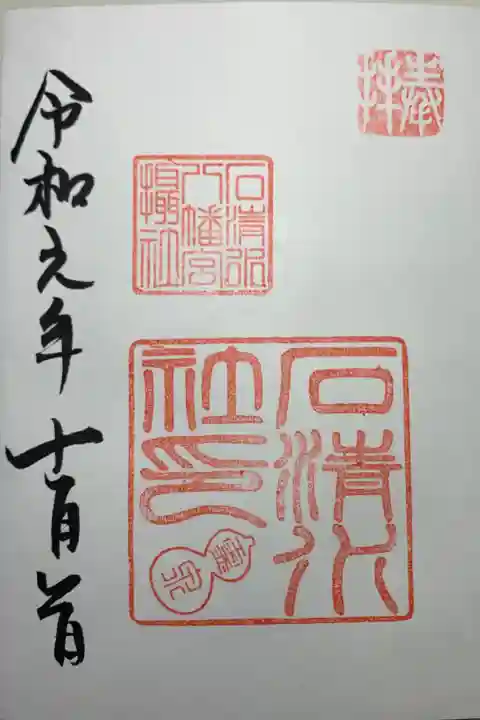 奉拝
石清水
八幡宮
攝社
石清水
社印
令和元年十一月